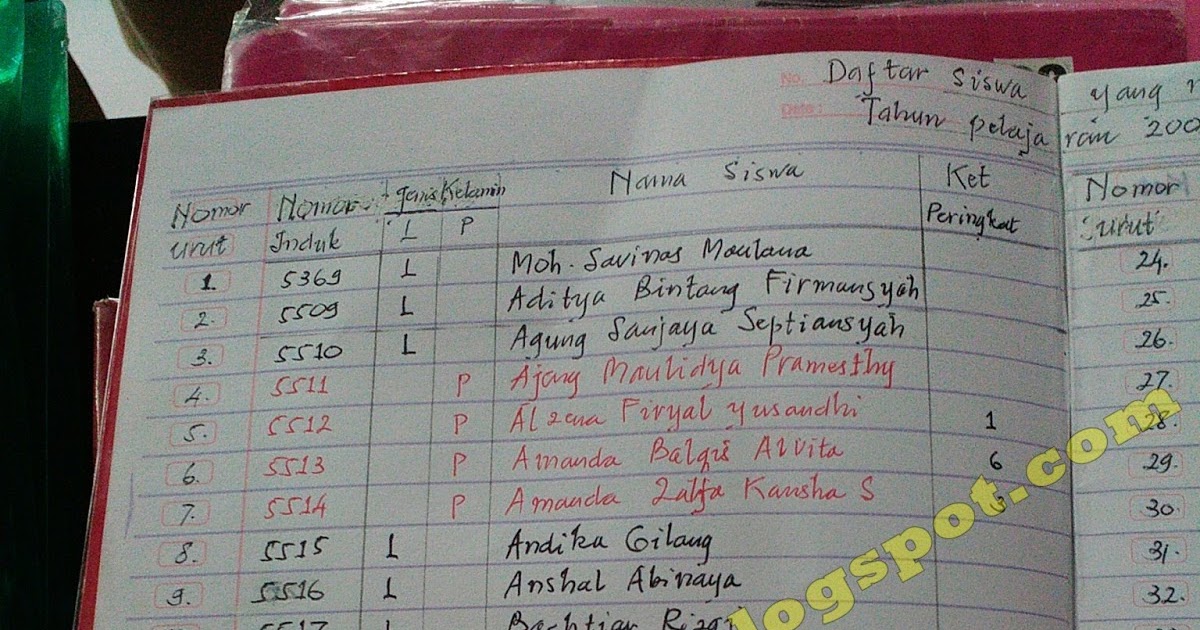 No. Daftar siswa yang
Date: Tahun pelajaran 200
Nomor Nomor Jenis Kelamin Nama Siswa Ket Nomor
urut Induk L P Peringkat urut
1. 5369 L Moh. Savinas Maulana 24.
2. 5509 L Aditya Bintang Firmansyah 25.
3. 5510 L Agung Sanjaya Septiansyah 26.
4. 5511 P Ajeng Maulidya Pramesthy 27.
5. 5512 P Alzena Firyal Yusandhi 1 28.
6. 5513 P Amanda Balqis Alvita 6 29.
7. 5514 P Amanda Zalfa Kansha S 3 30.
8. 5515 L Andika Gilang 31.
9. 5516 L Anshal Abinaya 32.
5517 L Bachtiar Rizqi
logspot.com